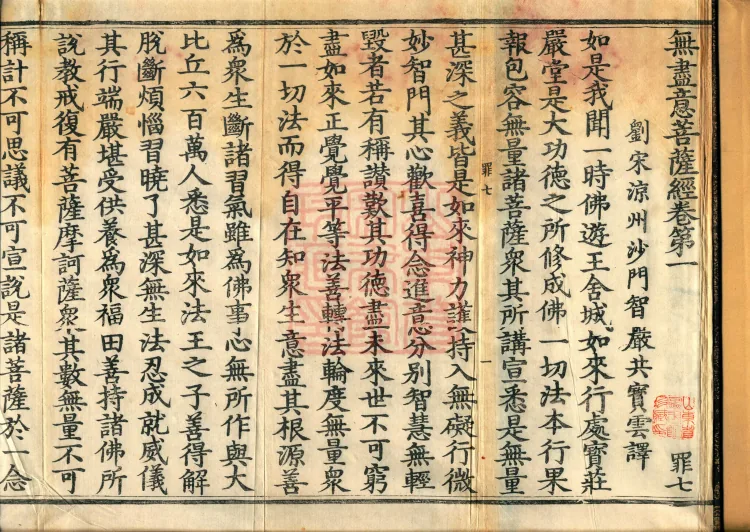 無盡意菩薩經卷第一
罪七
劉宋涼州沙門智嚴共寶雲譯
如是我聞一時佛遊王舍城如來行處寶莊
嚴堂是大功德之所修成佛一切法本行果
報包容無量諸菩薩衆其所講宣悉是無量
罪七
一
甚深之義皆是如來神力護持入無礙行微
妙智門其心歡喜得念進意分別智慧無輕
毀者若有稱讃歎其功德盡未來世不可窮
盡如來正覺覺平等法善轉法輪度無量衆
於一切法而得自在知衆生意盡其根源善
爲衆生斷諸習氣雖爲佛事心無所作與大
比丘六百萬人悉是如來法王之子善得解
脫斷煩惱習曉了甚深無生法忍成就威儀
其行端嚴堪受供養爲衆福田善持諸佛所
說教戒復有菩薩摩訶薩衆其數無量不可
稱計不可思議不可宣說是諸菩薩於一念